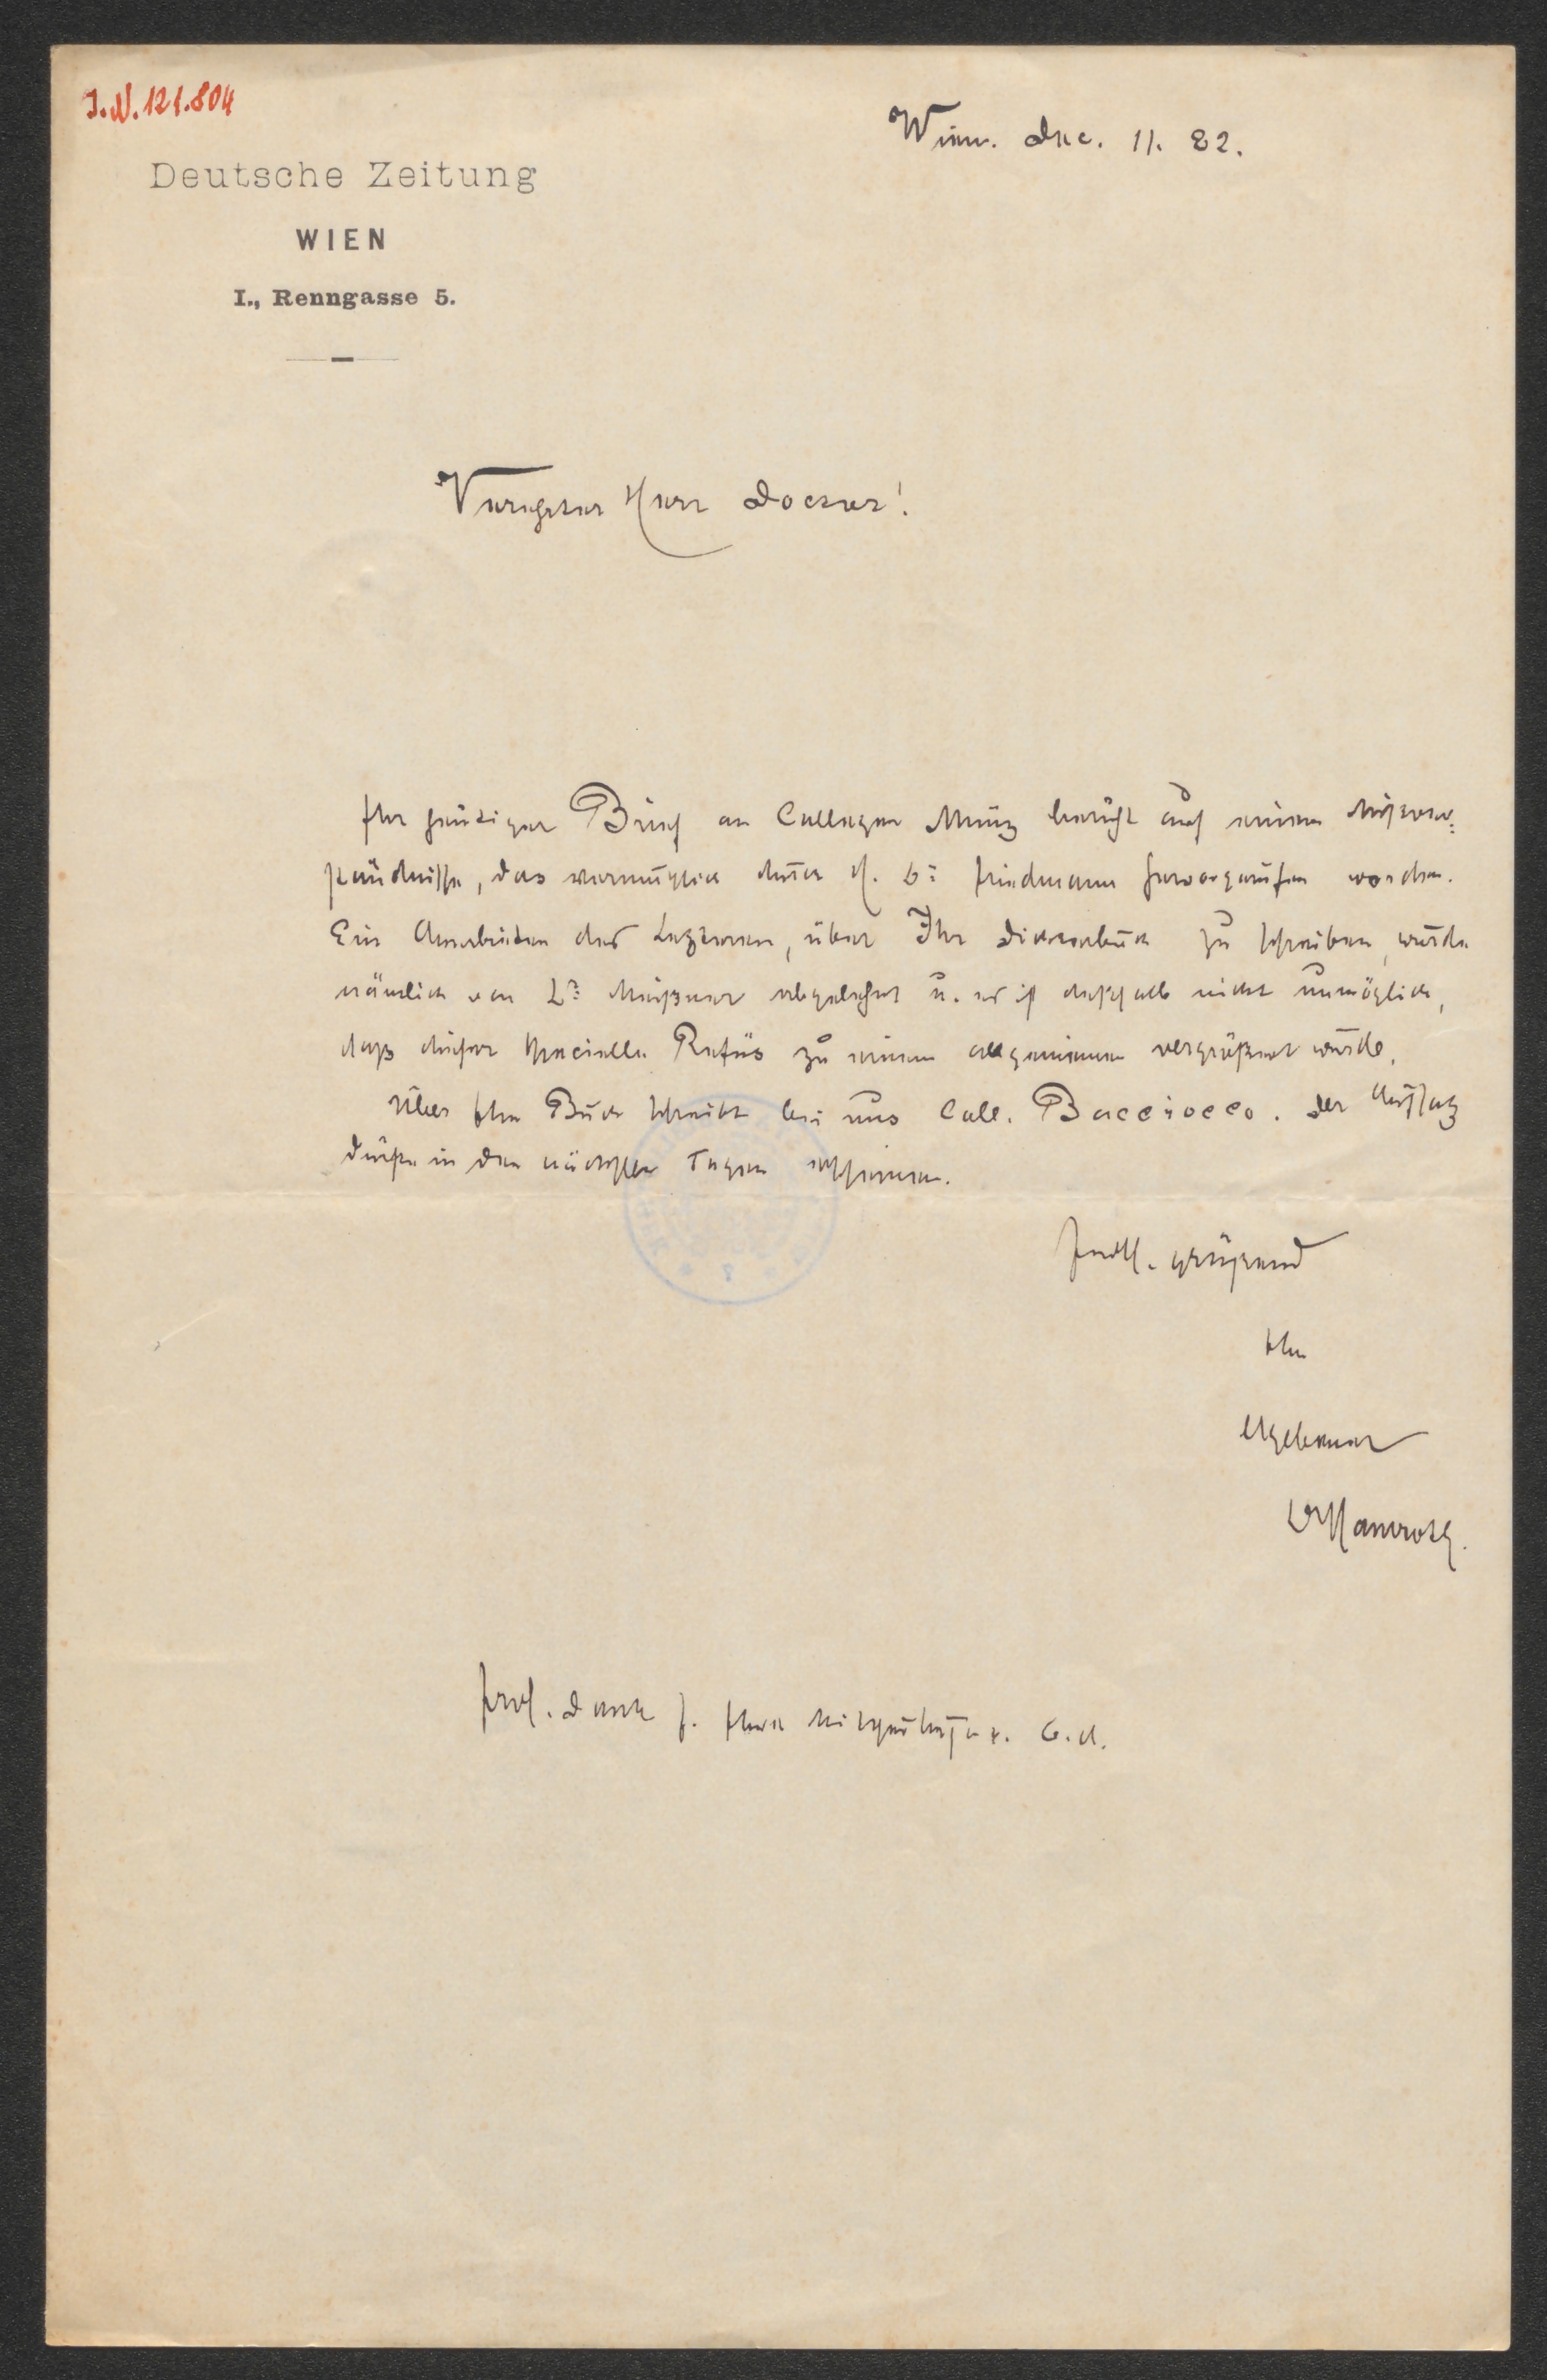 J.N. 121.804
Wien. Dec. 11. 82.
Deutsche Zeitung
WIEN
I., Renngasse 5.
Verehrter Herr Doctor!
Ihr heutiger Brief an Collegen Münz beruht auf einem Mißver-
ständnisse, das vermuthlich durch H. Friedmann hervorgerufen worden.
Ein Anerbieten des Letzteren, über Ihr Dichterbuch zu schreiben, wurde
nämlich von Meißner abgelehnt u. es ist deßhalb nicht unmöglich,
daß dieser specielle Refus zu einem allgemeinen vergrößert wurde.
Über Ihr Buch schreibt bei uns Coll. Bacciocco. Der Aufsatz
dürfte in den nächsten Tagen erscheinen.
grüßend
Ihr
Ergebener
Dank f. Ihre